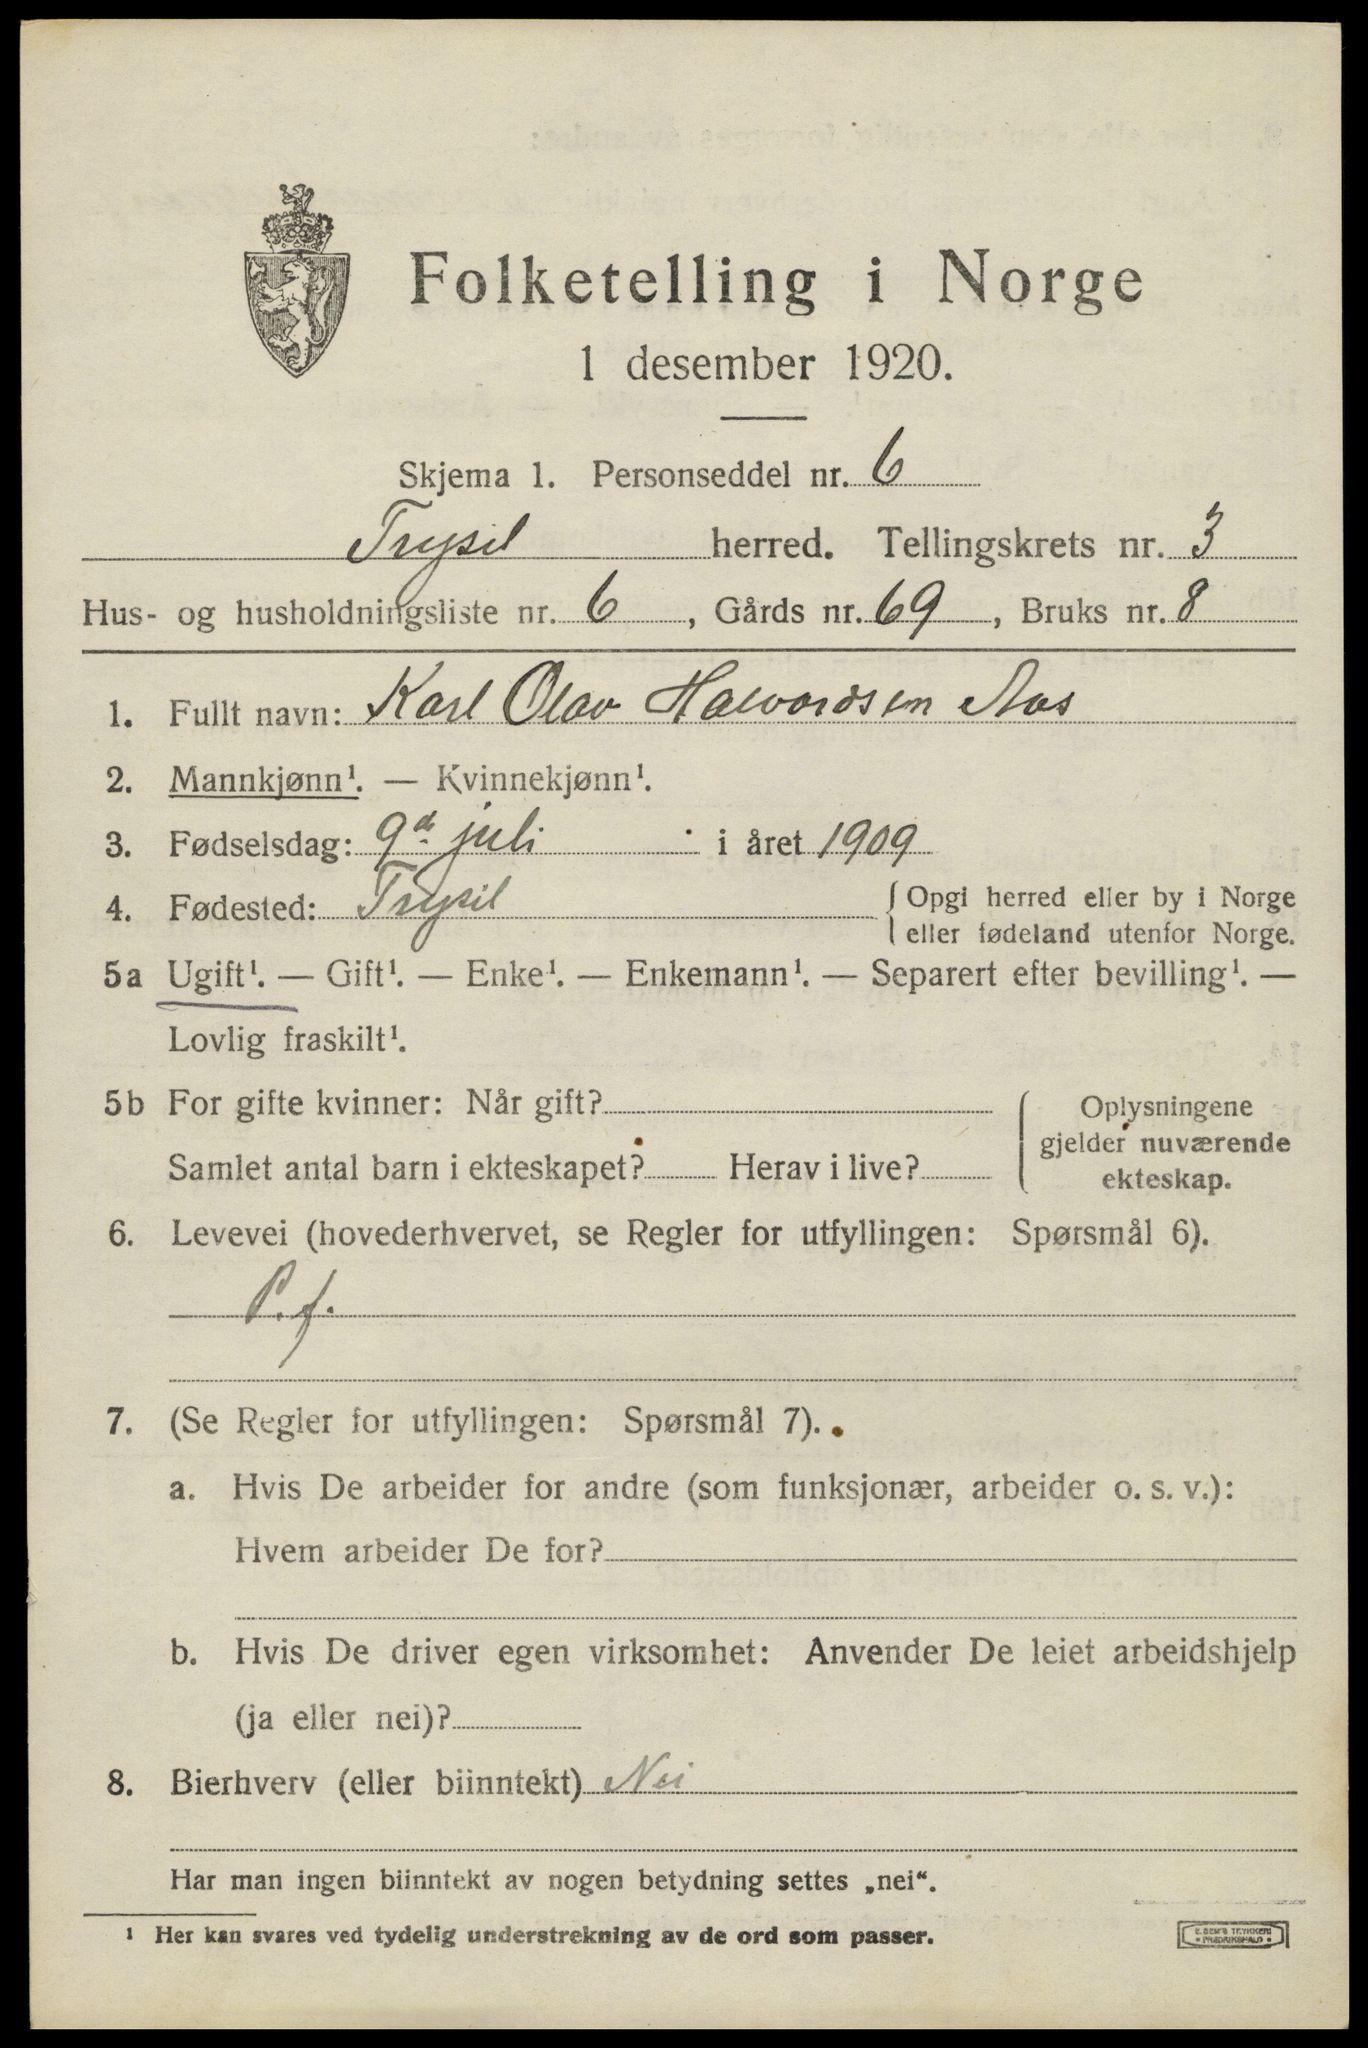 Folketelling i Norge
1 desember 1920.
Skjema 1. Personseddel nr. 6
Trysil herred. Tellingskrets nr. 3
Hus- og husholdningsliste nr. 6, Gårds nr. 69, Bruks nr. 8
1. Fullt navn: Karl Olav Halvordsen Aas
2. Mannkjønn¹. — Kvinnekjønn¹.
3. Fødselsdag: 9de juli i året 1909
4. Fødested: Trysil { Opgi herred eller by i Norge
eller fødeland utenfor Norge.
5a Ugift¹. — Gift¹. — Enke¹. — Enkemann¹. — Separert efter bevilling¹. —
Lovlig fraskilt¹.
5b For gifte kvinner: Når gift? { Oplysningene
gjelder nuværende
Samlet antal barn i ekteskapet? Herav i live? ekteskap.
6. Levevei (hovederhvervet, se Regler for utfyllingen: Spørsmål 6).
P. f.
7. (Se Regler for utfyllingen: Spørsmål 7).
a. Hvis De arbeider for andre (som funksjonær, arbeider o. s. v.):
Hvem arbeider De for?
b. Hvis De driver egen virksomhet: Anvender De leiet arbeidshjelp
(ja eller nei)?
8. Bierhverv (eller biinntekt) Nei
Har man ingen biinntekt av nogen betydning settes „nei“.
¹ Her kan svares ved tydelig understrekning av de ord som passer.
E. SEM'S TRYKKERI
FREDRIKSHALD